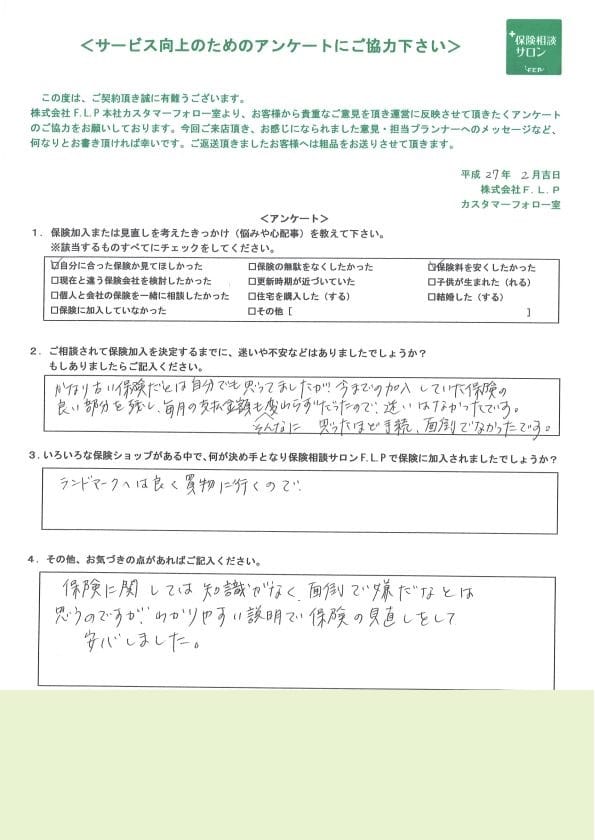 ＜サービス向上のためのアンケートにご協力下さい＞
保険相談
サロン
F.L.P
この度は、ご契約頂き誠に有難うございます。
株式会社F.L.P本社カスタマーフォロー室より、お客様から貴重なご意見を頂き運営に反映させて頂きたくアンケート
のご協力をお願いしております。今回ご来店頂き、お感じになられました意見・担当プランナーへのメッセージなど、
何なりとお書き頂ければ幸いです。ご返送頂きましたお客様へは粗品をお送りさせて頂きます。
平成 27年 2月吉日
株式会社F.L.P
カスタマーフォロー室
＜アンケート＞
1．保険加入または見直しを考えたきっかけ（悩みや心配事）を教えて下さい。
※該当するものすべてにチェックをしてください。
☑自分に合った保険か見てほしかった □保険の無駄をなくしたかった ☑保険料を安くしたかった
□現在と違う保険会社を検討したかった □更新時期が近づいていた □子供が生まれた（れる）
□個人と会社の保険を一緒に相談したかった □住宅を購入した（する） □結婚した（する）
□保険に加入していなかった □その他［ ］
2．ご相談されて保険加入を決定するまでに、迷いや不安などはありましたでしょうか？
もしありましたらご記入ください。
かなり古い保険だとは自分でも思ってましたが、今までの加入していた保険の
良い部分を残し、毎月の支払金額も変わらずだったので、迷いはなかったです。
そんなに 思ったほど手続、面倒でなかったです。
3．いろいろな保険ショップがある中で、何が決め手となり保険相談サロンF.L.Pで保険に加入されましたでしょうか？
ランドマークへは良く買物に行くので、
4．その他、お気づきの点があればご記入ください。
保険に関しては知識がなく、面倒で嫌だなとは
思うのですが、わかりやすい説明で、保険の見直しをして
安心しました。